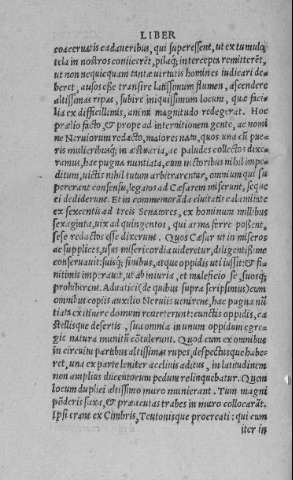 LIBER
coaceruatis cadaueribus, qui superessent, ut ex tumulo
tela in nostros coniicerēt, pilaq; intercepta remitterēt,
ut non nequicquam tantæ uirtutis homines iudicari de
beret, ausos eße transire latissimum flumen, ascendere
altissimas ripas, subire iniquissimum locum, quæ faci-
lia ex difficillimis, animi magnitudo redegerat. Hoc
prælio facto, & prope ad internitionem gente, ac nomi
ne Neruiorum redacto, maiores natu, quos unà cū pue-
ris mulieribusq; in æstuaria, ac paludes collectos dixe
ramus, hac pugna nuntiata, cum uictoribus nihil impe
ditum, uictis nihil tutum arbitrarentur, omnium qui su
pererant consensu, legatos ad Cæsarem miserunt, seque
ei dediderunt. Et in commemorāda ciuitatis calamitate
ex sexcentis ad treis Senatores, ex hominum millibus
sexaginta, uix ad quingentos, qui arma ferre poßent,
sese redactos esse dixerunt. Quos Cæsar ut in miseros
ac supplices, usus misericordia uideretur, diligentißime
conseruauit: suisq; finibus, atque oppidis uti iussit: & fi
nitimis imperauit, ut ab iniuria, et maleficio se, suosq;
prohiberent. Aduatici (de quibus supra scripsimus) cum
omnibus copiis auxilio Neruiis uenirent, hac pugna nū
tiata ex itinere domum reuerterunt: cunctis oppidis, ca
stellisque desertis, sua omnia in unum oppidum egre-
giè natura munitū cōtulerunt. Quod cum ex omnibus
in circuitu partibus altissimas rupes, despectusque habe-
ret, una ex parte leniter accliuis aditus, in latitudinem
non amplius ducentorum pedum relinquebatur. Quem
locum duplici altissimo muro munierant. Tum magni
pōderis saxa, & præacutas trabes in muro collocarāt.
Ipsi erant ex Cimbris, Teutonisque procreati: qui cum
iter in